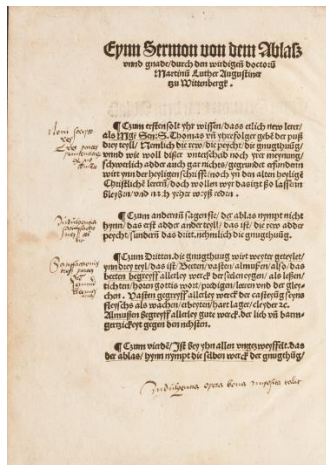 Eynn Sermon von dem Ablasz
vnnd gnade/ durch den wirdigen doctorū
Martinū Luther Augustiner
tzu Wittenbergk.
¶ Czum ersten solt yhr wissen/ dass etlich new lerer/
als Mgr̄ Sen: S. Thomas vn̄ yhre folger gebē der pusz
drey teyll/ Nemlich die rew/ die peycht/ die gnugthuūg/
vnnd wie woll diszer vnterscheid noch yrer meynung/
schwerlich adder auch gar nichts/ gegrundet erfunden
wirt ynn der heyligen schrifft/ noch yn den alten heyligē
Christlichē lerern/ doch wollen wyr das itzt szo lassen
bleyben/ vnd nach yrher weysz reden.
¶ Czum anderen sagen sie/ der ablas nympt nicht
hynn/ das erst adder ander teyll/ das ist/ die rew adder
peycht/ sundern das dritt. nehmlich die gnugthuūg.
¶ Czum Dritten. die gnugthuūg wirt weyter geteylet/
ynn drey teyl/ das ist/ Beeten/ vasten/ almuszen/ alszo/ das
beeten begreyff allerley werck der selen eygen/ als leszen/
tichten/ horen gottis wort/ predigen/ leeren vnd der gley-
chen. Vasten begreyff allerley werck der casteyūg seyns
fleyschs/ als wachen/ erbeyten/ hart lager/ cleyder zc.
Almuszen begreyff allerley gute werck. der lieb vn̄ barm-
hertzickeyt gegen den nehsten.
¶ Czum vierdē/ Ist bey yhn allen vngetzweyffelt. das
der ablas/ hynn nympt die selben werck der gnugthuūg/
Indulgentia opera bona imposita tollit